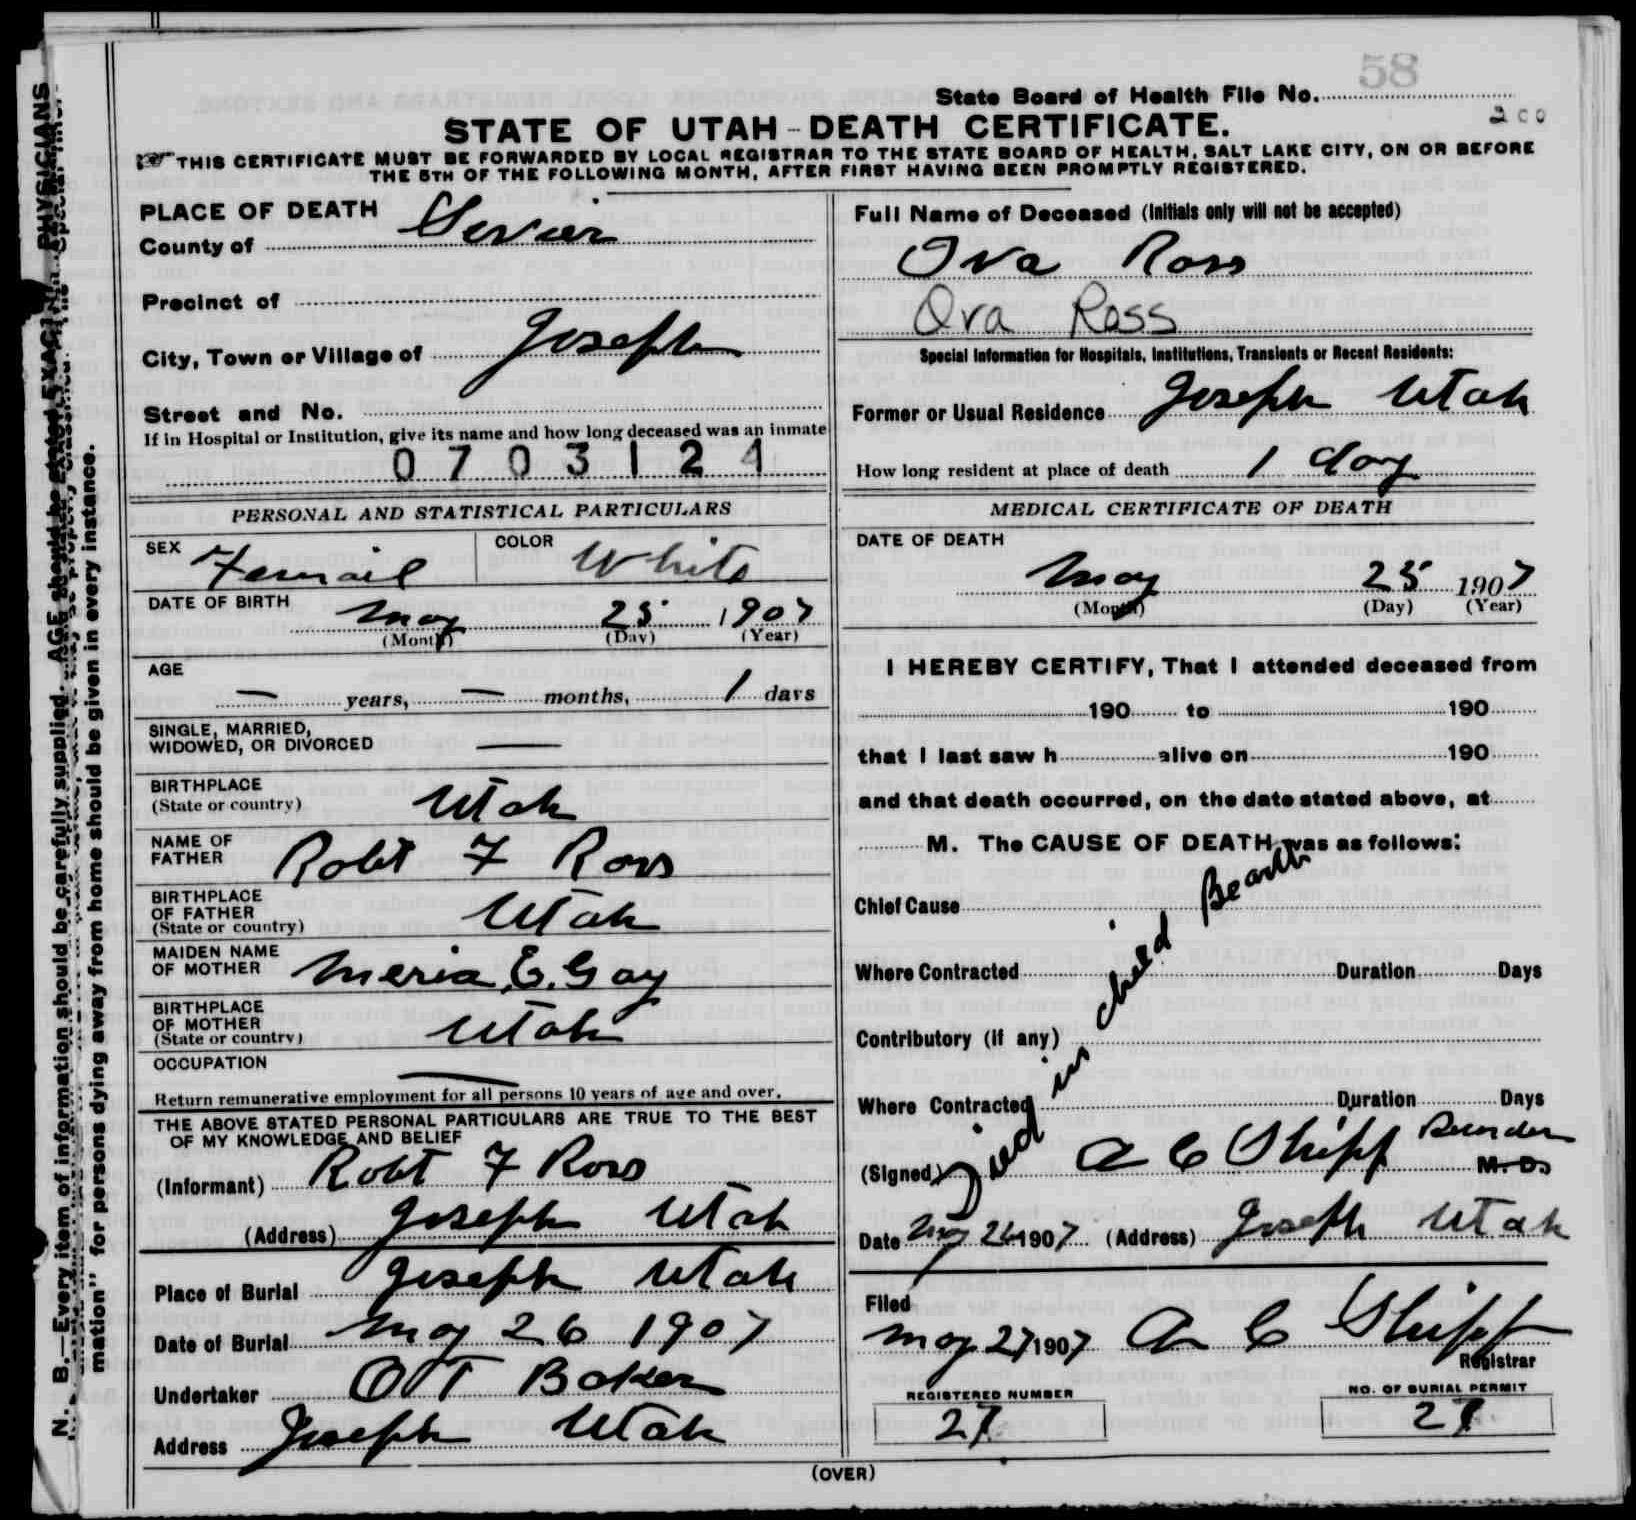 58
State Board of Health File No.
200
STATE OF UTAH - DEATH CERTIFICATE.
THIS CERTIFICATE MUST BE FORWARDED BY LOCAL REGISTRAR TO THE STATE BOARD OF HEALTH, SALT LAKE CITY, ON OR BEFORE
THE 5TH OF THE FOLLOWING MONTH, AFTER FIRST HAVING BEEN PROMPTLY REGISTERED.
PLACE OF DEATH
County of Sevier
Precinct of
City, Town or Village of Joseph
Street and No.
If in Hospital or Institution, give its name and how long deceased was an inmate
0703124
PERSONAL AND STATISTICAL PARTICULARS
SEX Femail COLOR White
DATE OF BIRTH
May 25 1907
(Month) (Day) (Year)
AGE
— years, — months, 1 days
SINGLE, MARRIED,
WIDOWED, OR DIVORCED —
BIRTHPLACE
(State or country) Utah
NAME OF
FATHER Robt F Ross
BIRTHPLACE
OF FATHER
(State or country) Utah
MAIDEN NAME
OF MOTHER Meria E. Gay
BIRTHPLACE
OF MOTHER
(State or country) Utah
OCCUPATION —
Return remunerative employment for all persons 10 years of age and over.
THE ABOVE STATED PERSONAL PARTICULARS ARE TRUE TO THE BEST
OF MY KNOWLEDGE AND BELIEF
(Informant) Robt F Ross
(Address) Joseph Utah
Place of Burial Joseph Utah
Date of Burial May 26 1907
Undertaker O T Baker
Address Joseph Utah
Full Name of Deceased (Initials only will not be accepted)
Ova Ross
Ova Ross
Special Information for Hospitals, Institutions, Transients or Recent Residents:
Former or Usual Residence Joseph Utah
How long resident at place of death 1 day
MEDICAL CERTIFICATE OF DEATH
DATE OF DEATH
May 25 1907
(Month) (Day) (Year)
I HEREBY CERTIFY, That I attended deceased from
190 to 190
that I last saw h alive on 190
and that death occurred, on the date stated above, at
M. The CAUSE OF DEATH was as follows:
Died in child Bearth
Chief Cause
Where Contracted Duration Days
Contributory (if any)
Where Contracted Duration Days
(Signed) A C Shipp M. D.
Date May 26 1907 (Address) Joseph Utah
Filed
May 27 1907 A C Shipp
Registrar
REGISTERED NUMBER
27
NO. OF BURIAL PERMIT
27
(OVER)
N. B.—Every item of information should be carefully supplied. AGE should be stated EXACTLY. PHYSICIANS
mation" for persons dying away from home should be given in every instance.